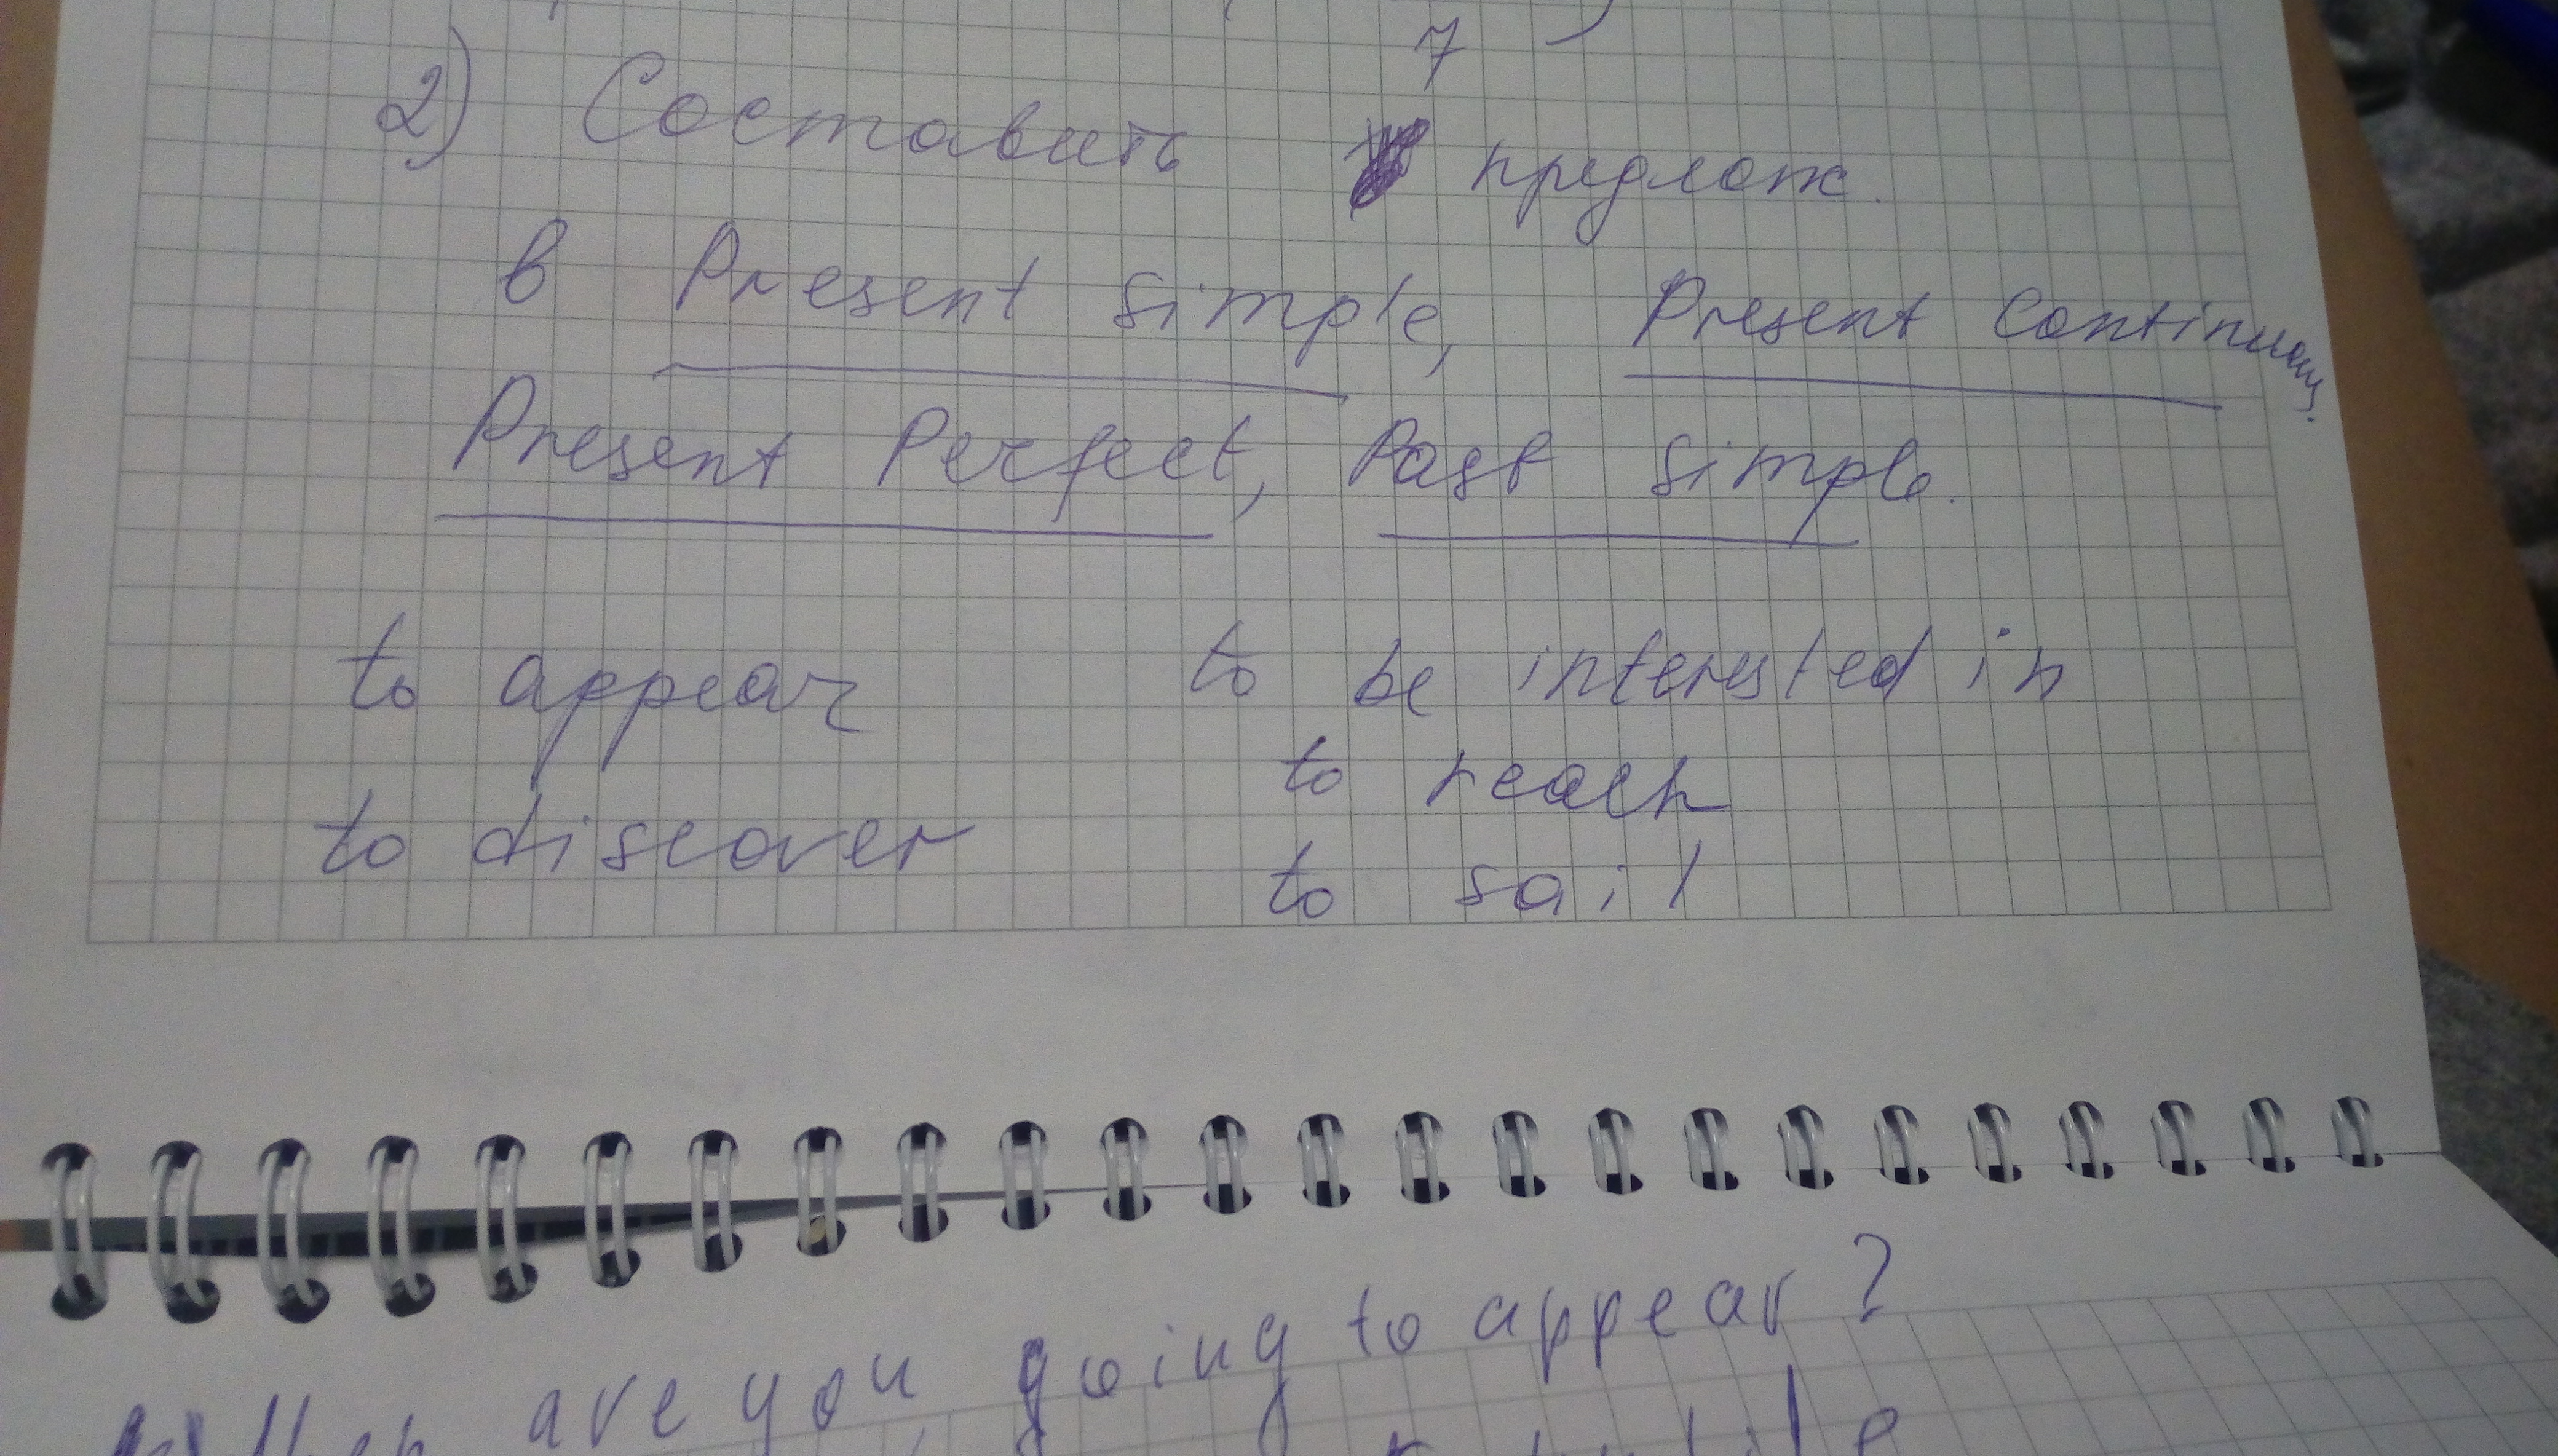 7
2) Составить предлож.
в Present simple, Present Continuous,
Present Perfect, Past simple.
to appear to be interested in
to reach
to discover
to sail
are you going to appear?